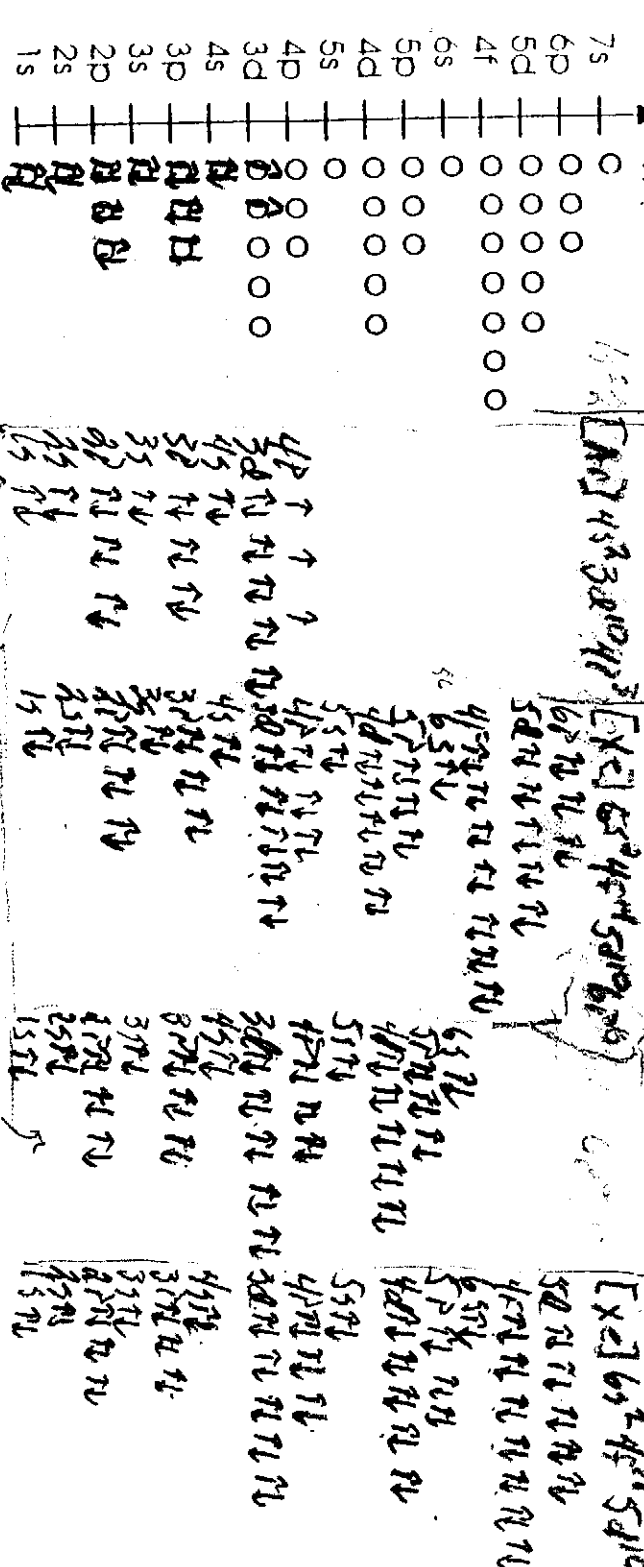 7s
6p
5d
4f
6s
5p
4d
5s
4p
3d
4s
3p
3s
2p
2s
1s
[Ar] 4s² 3d¹⁰ 4p³
4p ↑ ↑ ↑
3d ↑↓ ↑↓ ↑↓ ↑↓ ↑↓
4s ↑↓
3p ↑↓ ↑↓ ↑↓
3s ↑↓
2p ↑↓ ↑↓ ↑↓
2s ↑↓
1s ↑↓
[Xe] 6s² 4f¹⁴ 5d¹⁰ 6p⁶
6p ↑↓ ↑↓ ↑↓
5d ↑↓ ↑↓ ↑↓ ↑↓ ↑↓
4f ↑↓ ↑↓ ↑↓ ↑↓ ↑↓ ↑↓ ↑↓
6s ↑↓
5p ↑↓ ↑↓ ↑↓
4d ↑↓ ↑↓ ↑↓ ↑↓ ↑↓
5s ↑↓
4p ↑↓ ↑↓ ↑↓
3d ↑↓ ↑↓ ↑↓ ↑↓ ↑↓
4s ↑↓
3p ↑↓ ↑↓ ↑↓
3s ↑↓
2p ↑↓ ↑↓ ↑↓
2s ↑↓
1s ↑↓
6s ↑↓
5p ↑↓ ↑↓ ↑↓
4d ↑↓ ↑↓ ↑↓ ↑↓ ↑↓
5s ↑↓
4p ↑↓ ↑↓ ↑↓
3d ↑↓ ↑↓ ↑↓ ↑↓ ↑↓
4s ↑↓
3p ↑↓ ↑↓ ↑↓
3s ↑↓
2p ↑↓ ↑↓ ↑↓
2s ↑↓
1s ↑↓
[Xe] 6s² 4f¹⁴ 5d¹⁰
5d ↑↓ ↑↓ ↑↓ ↑↓ ↑↓
4f ↑↓ ↑↓ ↑↓ ↑↓ ↑↓ ↑↓ ↑↓
6s ↑↓
5p ↑↓ ↑↓ ↑↓
4d ↑↓ ↑↓ ↑↓ ↑↓ ↑↓
5s ↑↓
4p ↑↓ ↑↓ ↑↓
3d ↑↓ ↑↓ ↑↓ ↑↓ ↑↓
4s ↑↓
3p ↑↓ ↑↓ ↑↓
3s ↑↓
2p ↑↓ ↑↓ ↑↓
2s ↑↓
1s ↑↓